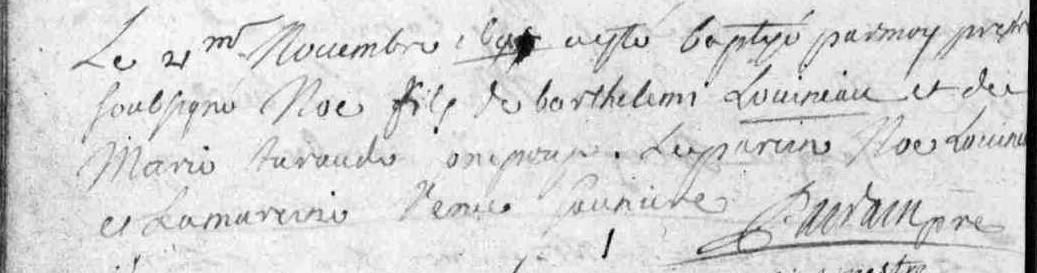 Le 21me Novembre 1695 a esté baptizé par moy prestre
soubsigné Noe fils de barthelemi Louineau et de
Marie turaude onepouse. Le parein Noe Louineau
et La mareine renee sauniere P. audain pre